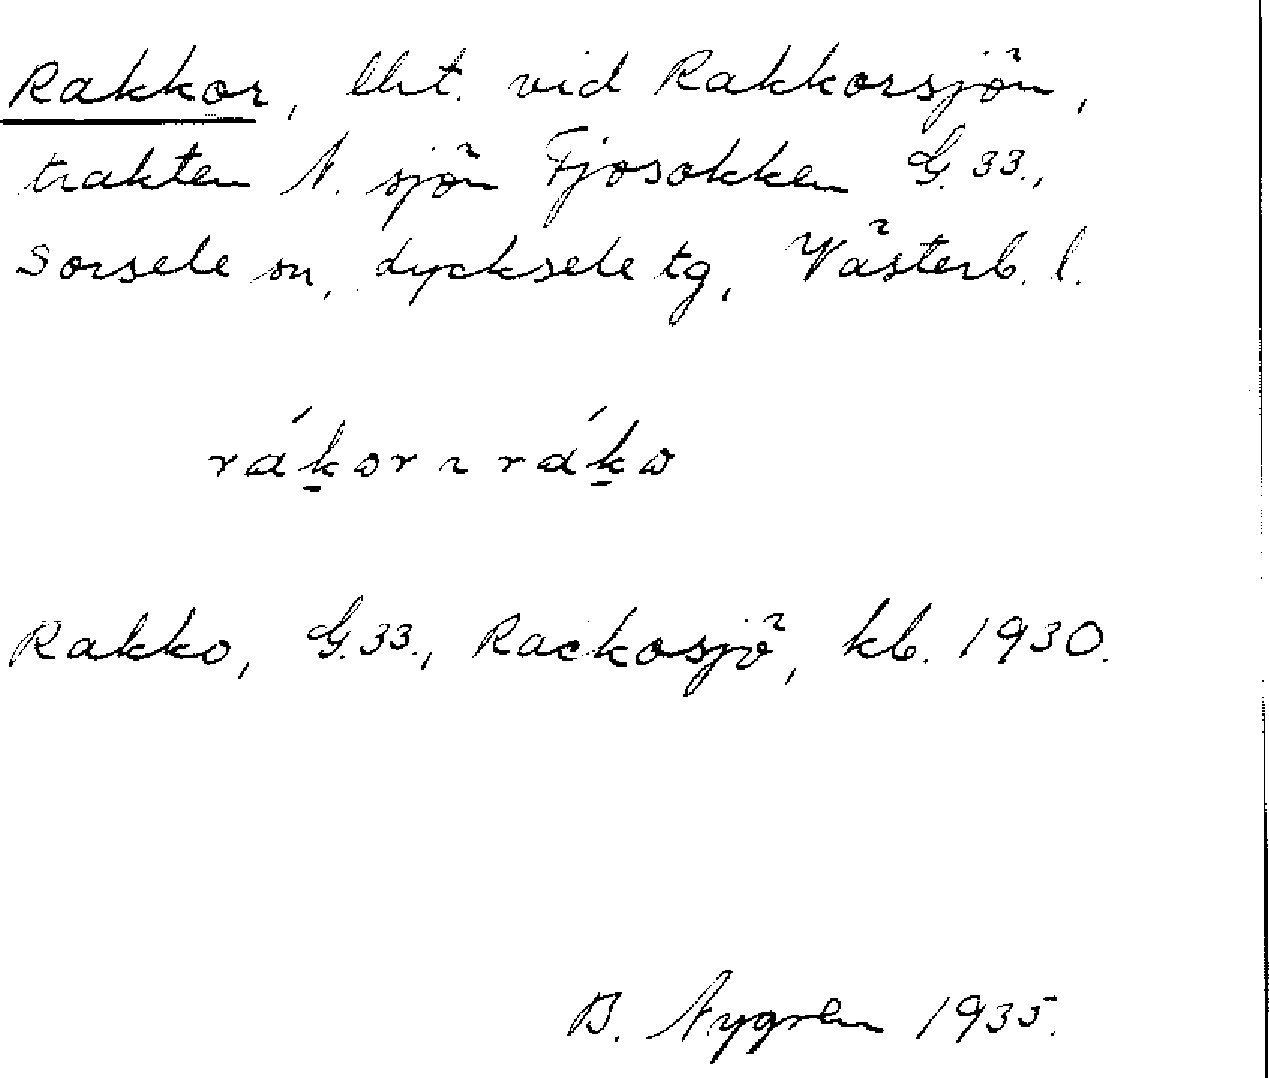 Rakkor, lht. vid Rakkorsjön,
trakten N. sjön Fjosokken G. 33.,
Sorsele sn, Lycksele tg, Västerb. l.
rák̠or ~ rák̠o
Rakko, G. 33., Rackosjö, kb. 1930.
B. Nygren 1935.